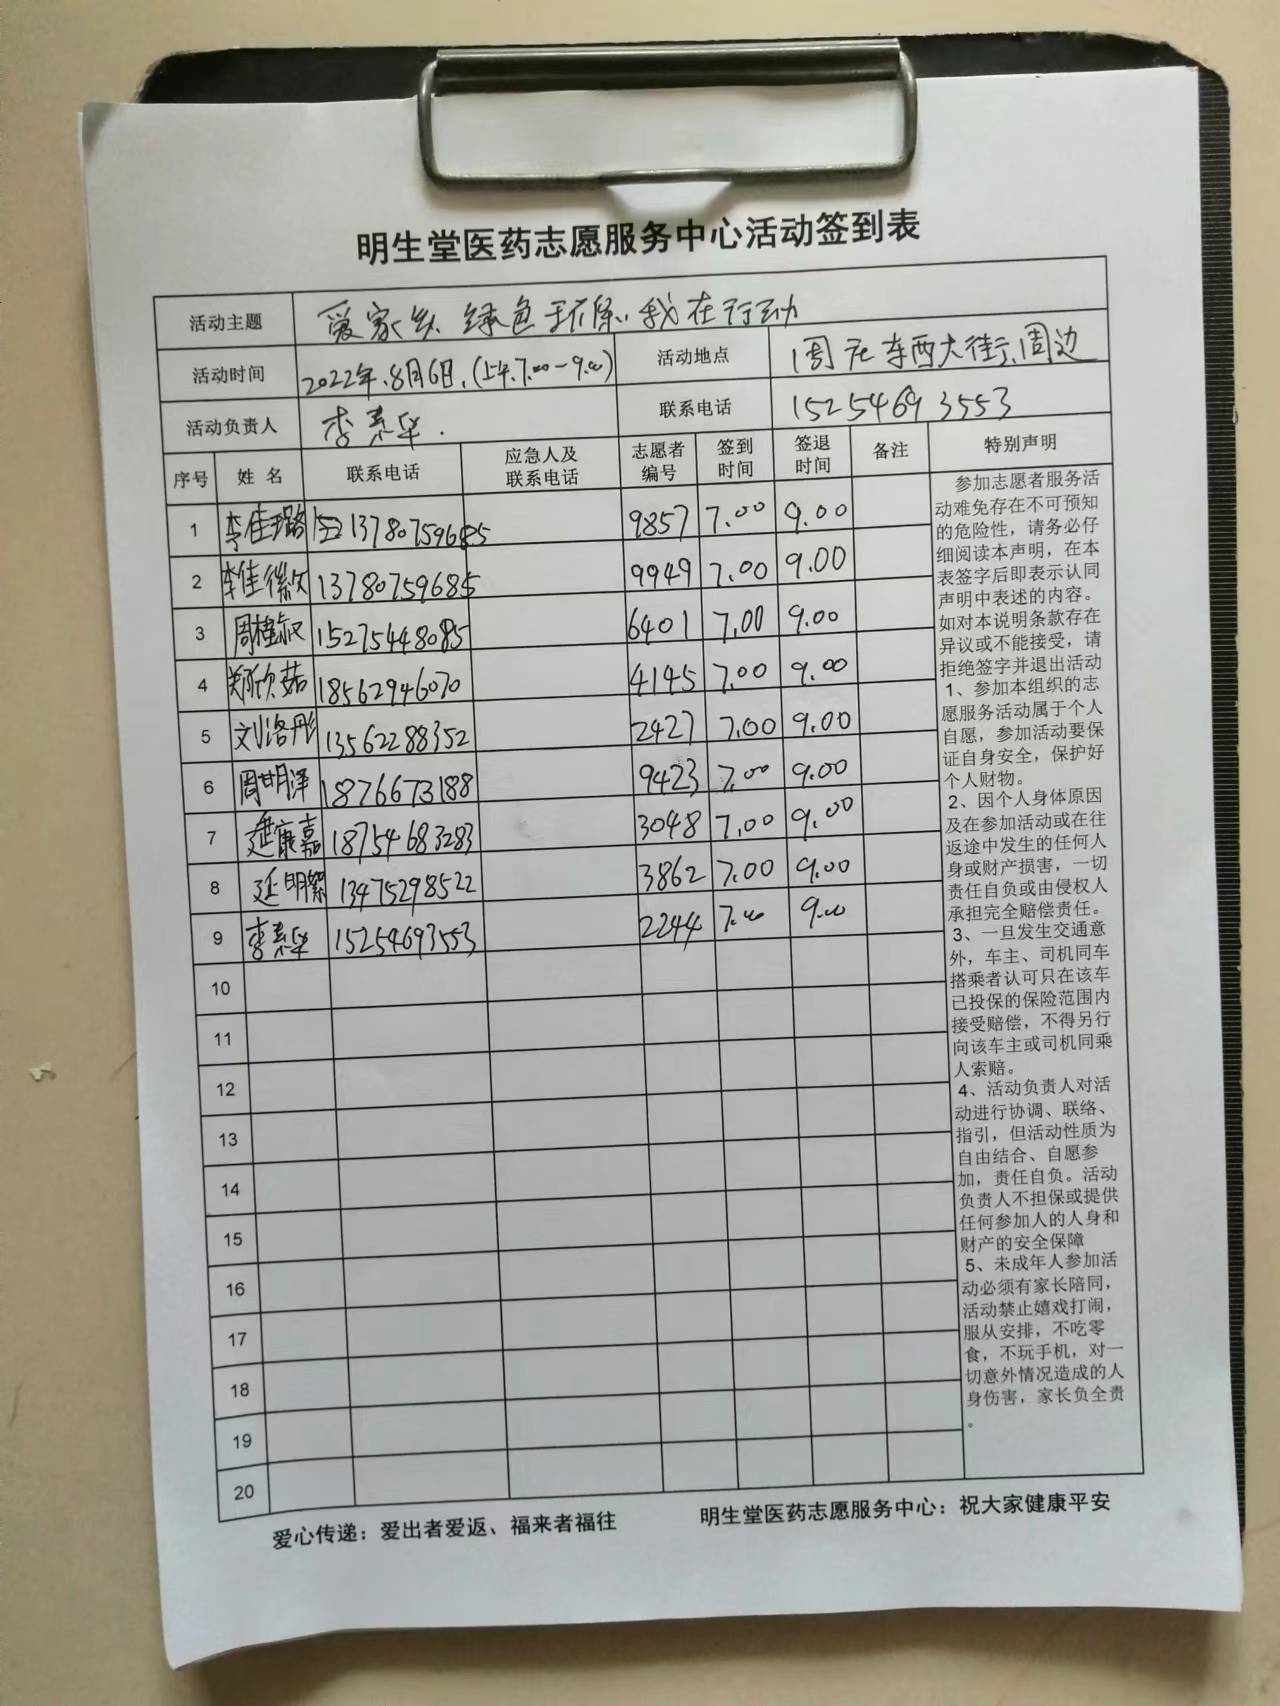 明生堂医药志愿服务中心活动签到表
活动主题 爱家乡 绿色环保 我在行动
活动时间 2022年.8月6日.(上午.7.00-9.00) 活动地点 周庄东西大街、周边
活动负责人 李素华. 联系电话 15254693553
序号 姓名 联系电话 应急人及联系电话 志愿者编号 签到时间 签退时间 备注 特别声明
1 李佳璐 13780759685 9857 7.00 9.00
2 李佳 13780759685 9949 7.00 9.00
3 周桂叔 15275448085 6401 7.00 9.00
4 郑欣茹 18562946070 4145 7.00 9.00
5 刘洛彤 13562288352 2427 7.00 9.00
6 周明泽 18766673188 9423 7.00 9.00
7 延康嘉 18754683283 3048 7.00 9.00
8 延明 13475298522 3862 7.00 9.00
9 李素华 15254693553 2244 7.00 9.00
10
11
12
13
14
15
16
17
18
19
20
参加志愿者服务活
动难免存在不可预知
的危险性，请务必仔
细阅读本声明，在本
表签字后即表示认同
声明中表述的内容。
如对本说明条款存在
异议或不能接受，请
拒绝签字并退出活动
1、参加本组织的志
愿服务活动属于个人
自愿，参加活动要保
证自身安全，保护好
个人财物。
2、因个人身体原因
及在参加活动或在往
返途中发生的任何人
身或财产损害，一切
责任自负或由侵权人
承担完全赔偿责任。
3、一旦发生交通意
外，车主、司机同车
搭乘者认可只在该车
已投保的保险范围内
接受赔偿，不得另行
向该车主或司机同乘
人索赔。
4、活动负责人对活
动进行协调、联络、
指引，但活动性质为
自由结合、自愿参
加，责任自负。活动
负责人不担保或提供
任何参加人的人身和
财产的安全保障
5、未成年人参加活
动必须有家长陪同，
活动禁止嬉戏打闹，
服从安排，不吃零
食，不玩手机，对一
切意外情况造成的人
身伤害，家长负全责
。
爱心传递：爱出者爱返、福来者福往 明生堂医药志愿服务中心：祝大家健康平安